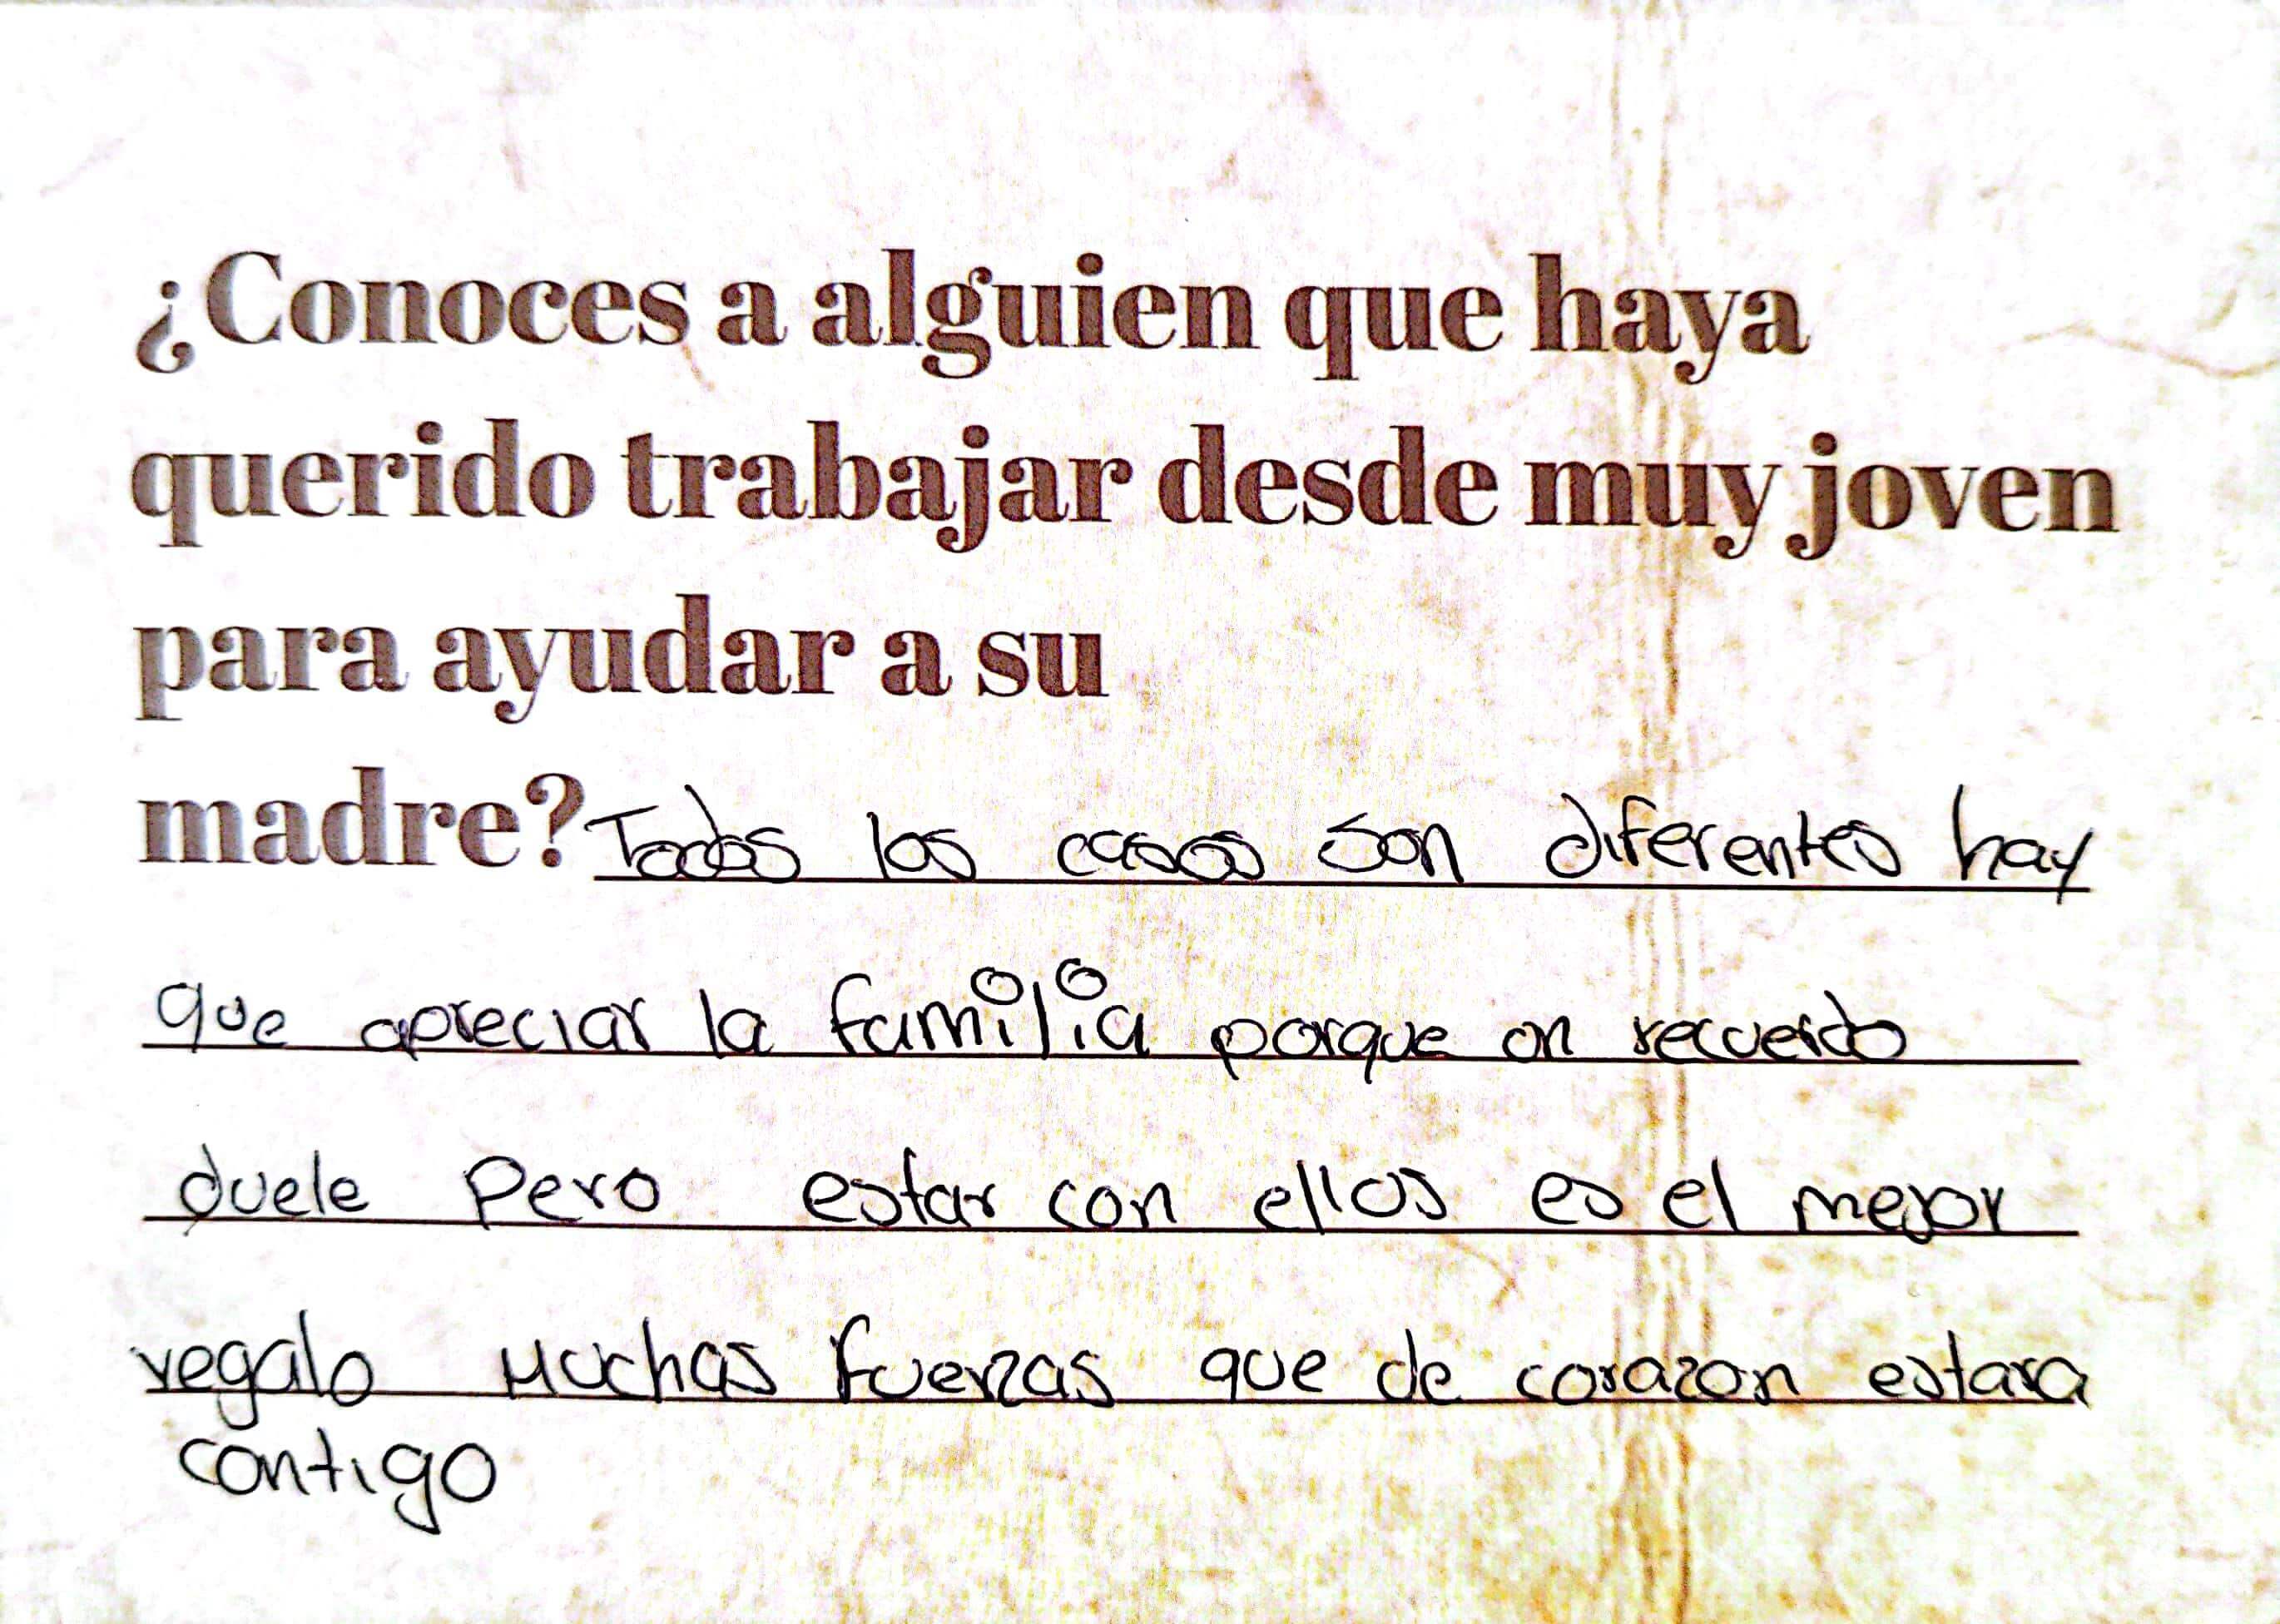 ¿Conoces a alguien que haya
querido trabajar desde muy joven
para ayudar a su
madre? Todos los casos son diferentes hay
que apreciar la familia porque on recuerdo
duele pero estar con ellos es el mejor
regalo Muchas fuerzas que de corazon estara
contigo